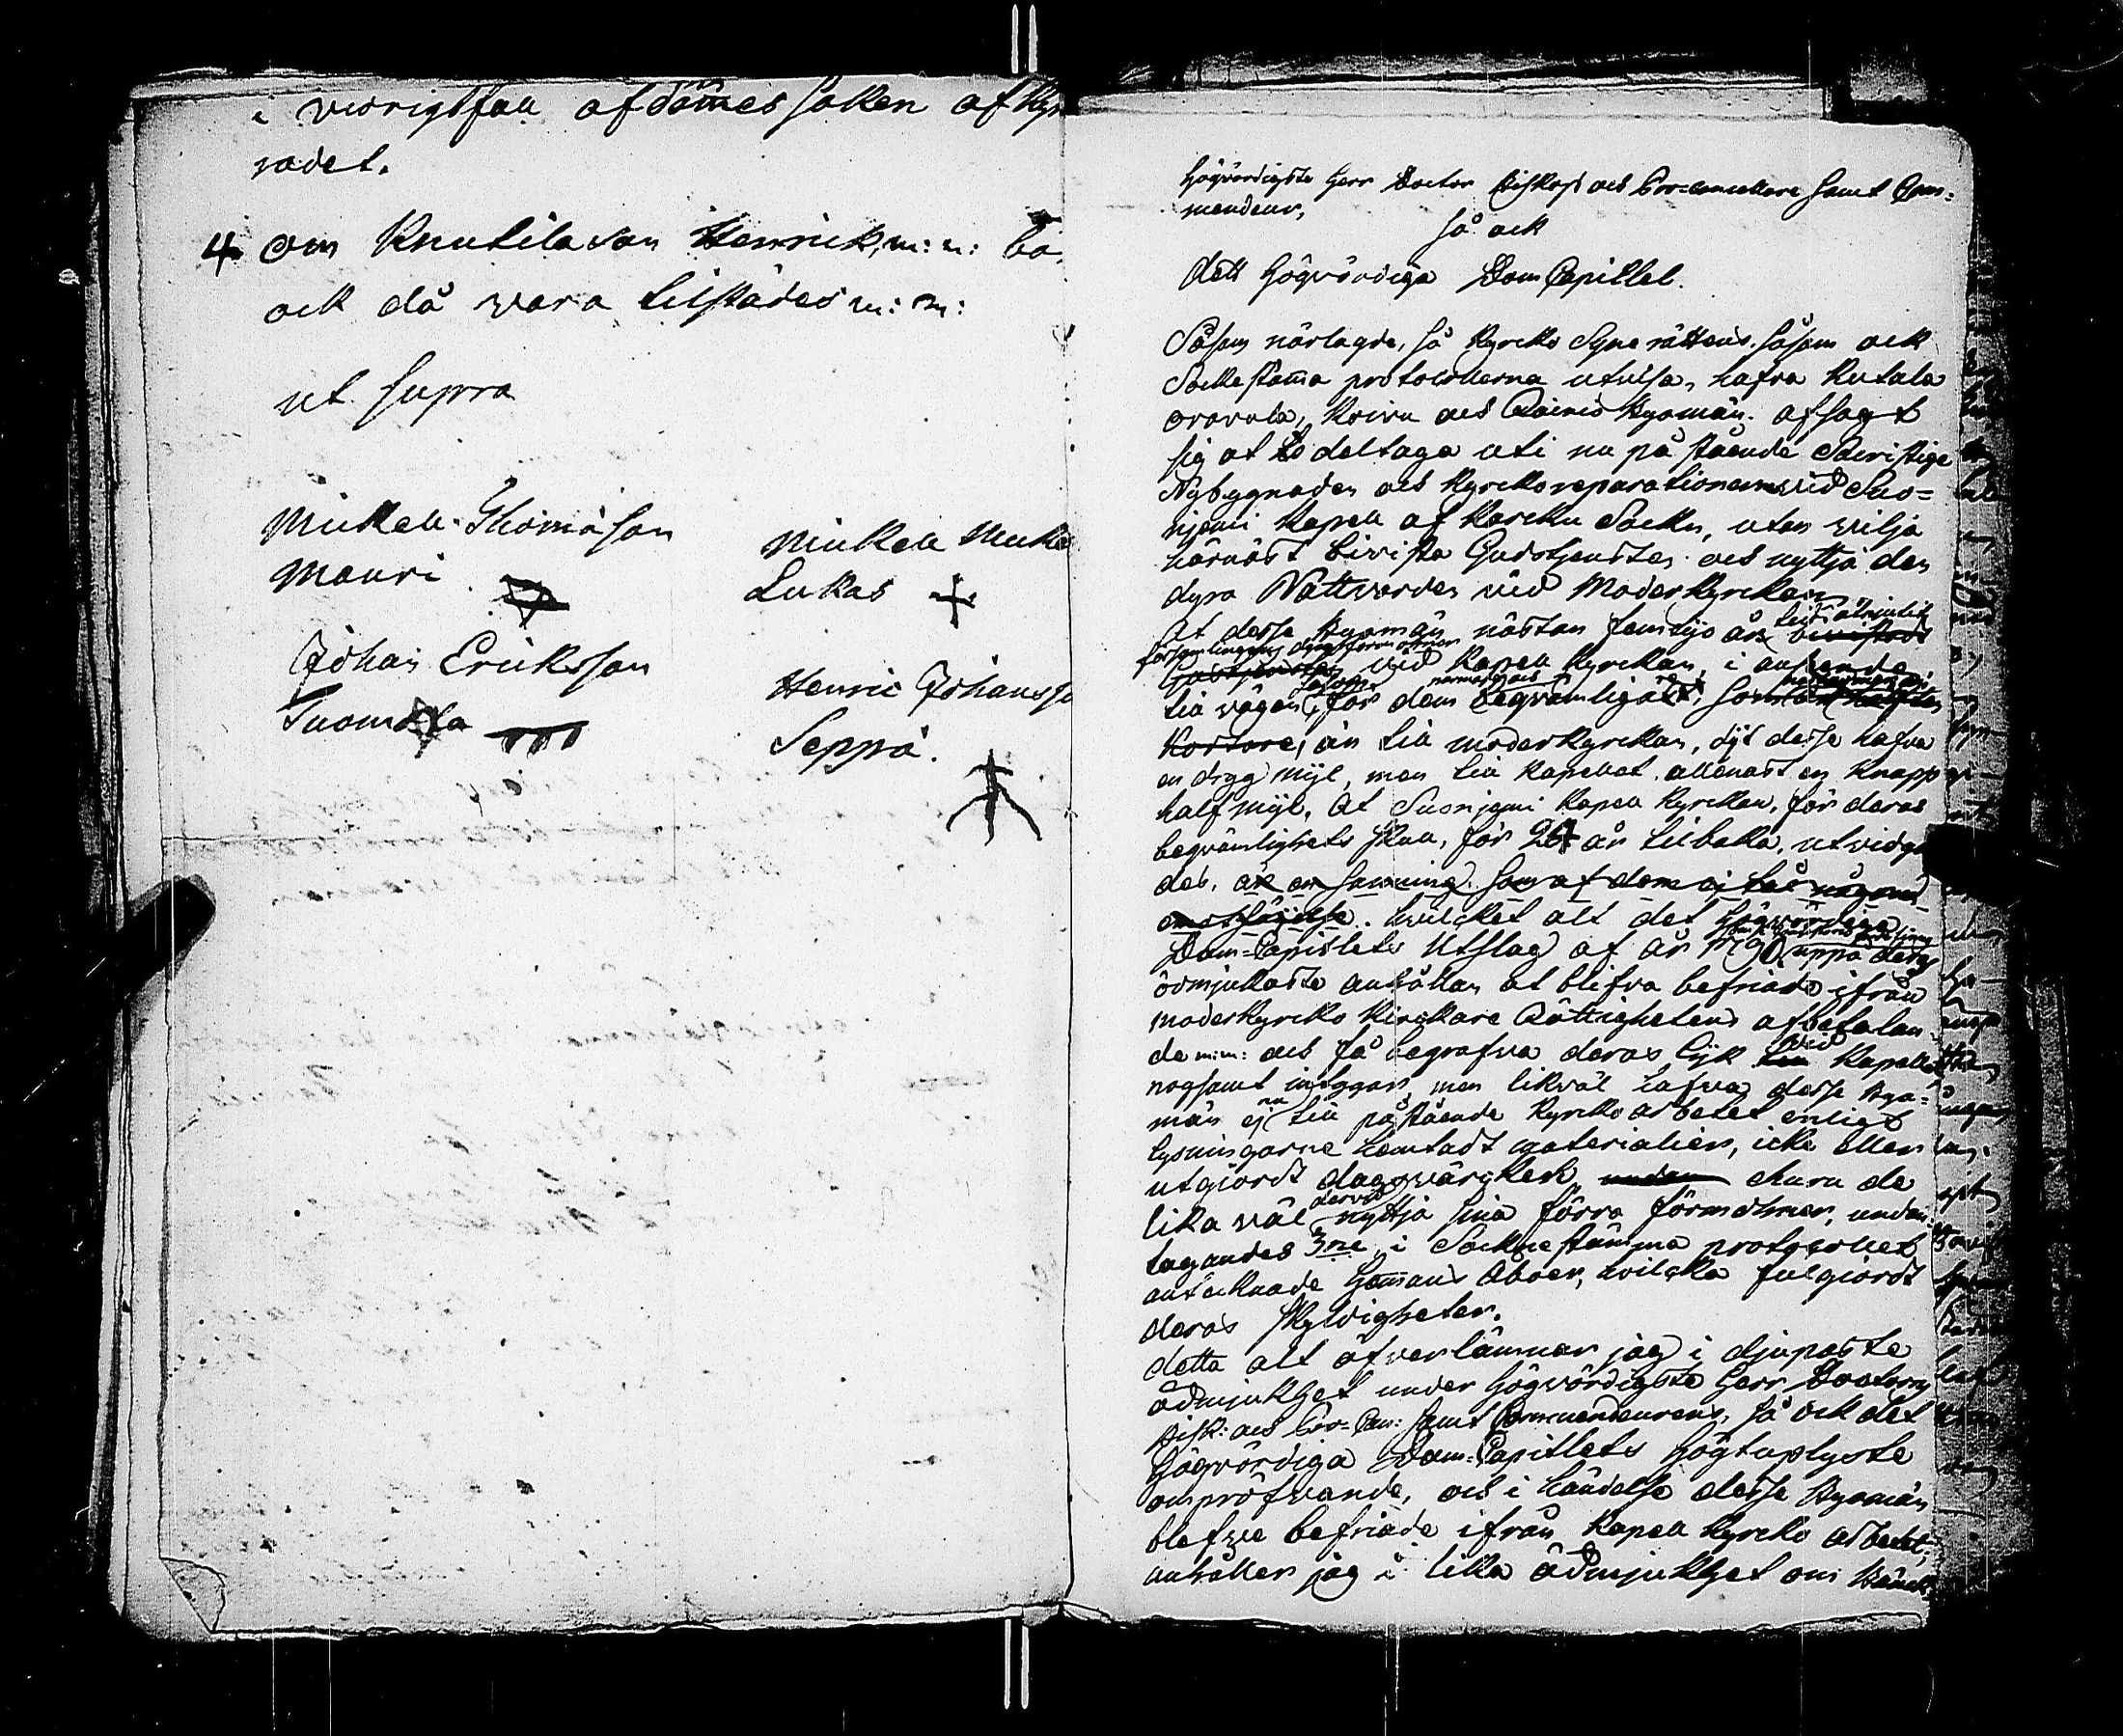 i vidrigtfall afdömes saken af Kyr
rådet.
4. om Knutila son Henrik, m: m:
ock då vara tilstädes m: m:
ut supra
Mickell Thomasson
Mauri
Mickell Micke
Lukas
Johan Eriksson
Tuomola
Henric Johansso
Seppä.
Högvördigste Herr Doctor Biskop och Pro-cancellere samt Com-
mendeur,
så ock
Dett Högvördiga Dom Capittel.
Såsom närlagde, så Kyrcko Syne rättens. såsom ock
Sockestama protocollerna utvisa, hafva Kutala
Oravala, Koivu och Rainio Byamän. afsagt
sig at deltaga uti nu på stående Sacristige
Nybyggnaden och Kyrckoreparationen vid Suo-
njemi Kapell af Karcku Sockn, utan vilja
härnäst bivista Gudstjensten och nyttja den
dyra Nattvarden vid Moderkyrckan
At desse Byamän nästan femtijo år tid åtniutit
församlingens dyra förmoner
vid Kapell Kyrckan, i anseende
til vägen, för dem beqvämligast, som
kortare, än til moderkyrckan, dijt desse hafva
en drygg mijl, men til Kapellet allenast en knapp
half mijl, At Suonjemi Kapell Kyrckan, för deras
beqvämlighets skull, för 24 år tilbakka, utvidga
des, är en sanning som af dem ej
hvilcket alt det Högvördiga
Dom-Capitlets Utslag af år uppå deras
ödmjukaste anhållan at blifva befriade ifrån
moderkyrcko Klockare Rättighetens afbetalan
de m:m: och få begrafva deras Lijk vid Kapellet
nogsamt intygar, men likväl hafva desse Bya-
män ej nu til påstående Kyrcko arbetet enligt
lysningarne hemtadt materialier, icke eller
utgiordt dagsvärcken, ehuru de
lika väl dervid nyttja sina förra förmohner, undan
tagandes 3ne i Sockne stämma protocollet
antecknade Hemans Åboer, hvilcka fulgiordt
deras skyldigheter.
detta alt öfverlämnar jag i djupaste
ödmjukhet under Högvördigste Herr Doctorns
Bisk: och Pro-Can: samt Commendeurens, så ock det
Högvördiga Dom-Capitlets Högtuplyste
ompröfvande, och i händelse desse Byamän
blefve befriade ifrån Kapell Kyrcko arbetet,
anhåller jag i lika ödmjukhet om